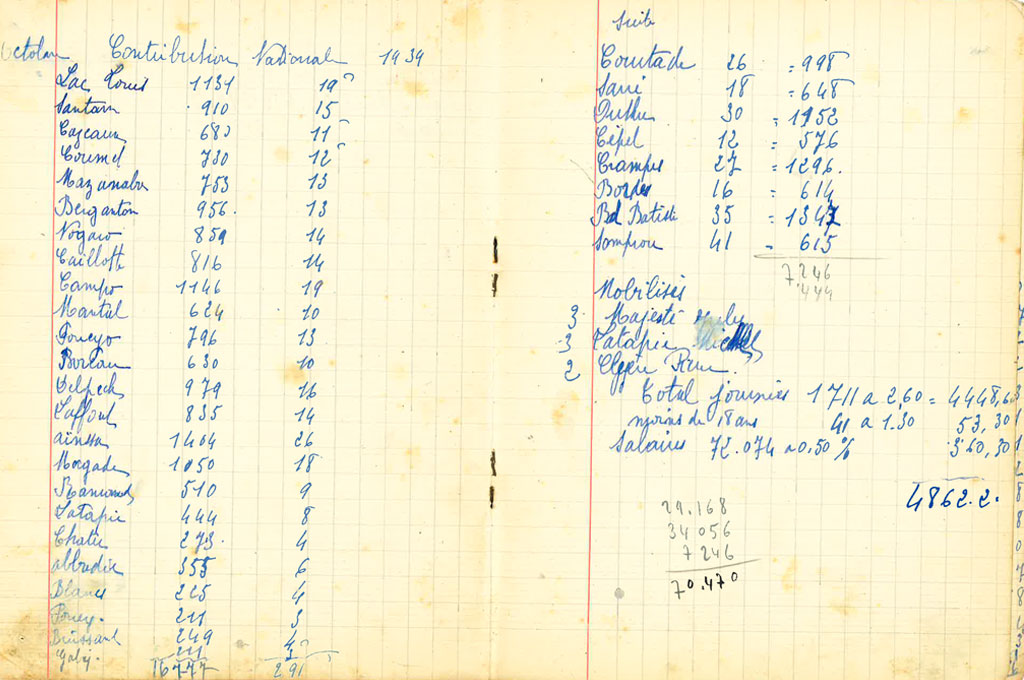 Contribution Nationale 1939
Lac Louis 1131 19
Santarn 910 15
Cazeaux 683 11
Courmel 730 12
Mazanabe 753 13
Berganton 956. 13
Nogaro 859 14
816 14
Campo 1146 19
Mantul 624 10
Poueyo 796 13
Bureau 630 10
Delpech 979 16
Laffont 835 14
ainsa 1404 26
1050 18
510 9
Latapie 444 8
273. 4
abbadie 355 6
Blanc 225 4
Pouey. 211 3
Buissart 249 4
16777 291
Suite
Courtade 26 = 998
Sarré 18 = 648
30 = 1952
Cépel 12 = 576
Crampes 27 = 1296.
Bordes 16 = 614
Bd Batisti 35 = 1347
Somprou 41 = 615
7246
444
Mobilisés
3 Majesté
3 Latapie
2
Total journées 1711 a 2,60 = 4448,6
moins de 18 ans 41 a 1.30 53,30
Salaires 72.074 a 0,50 % 360,30
4862.2.
29.168
34 056
7 246
70.470